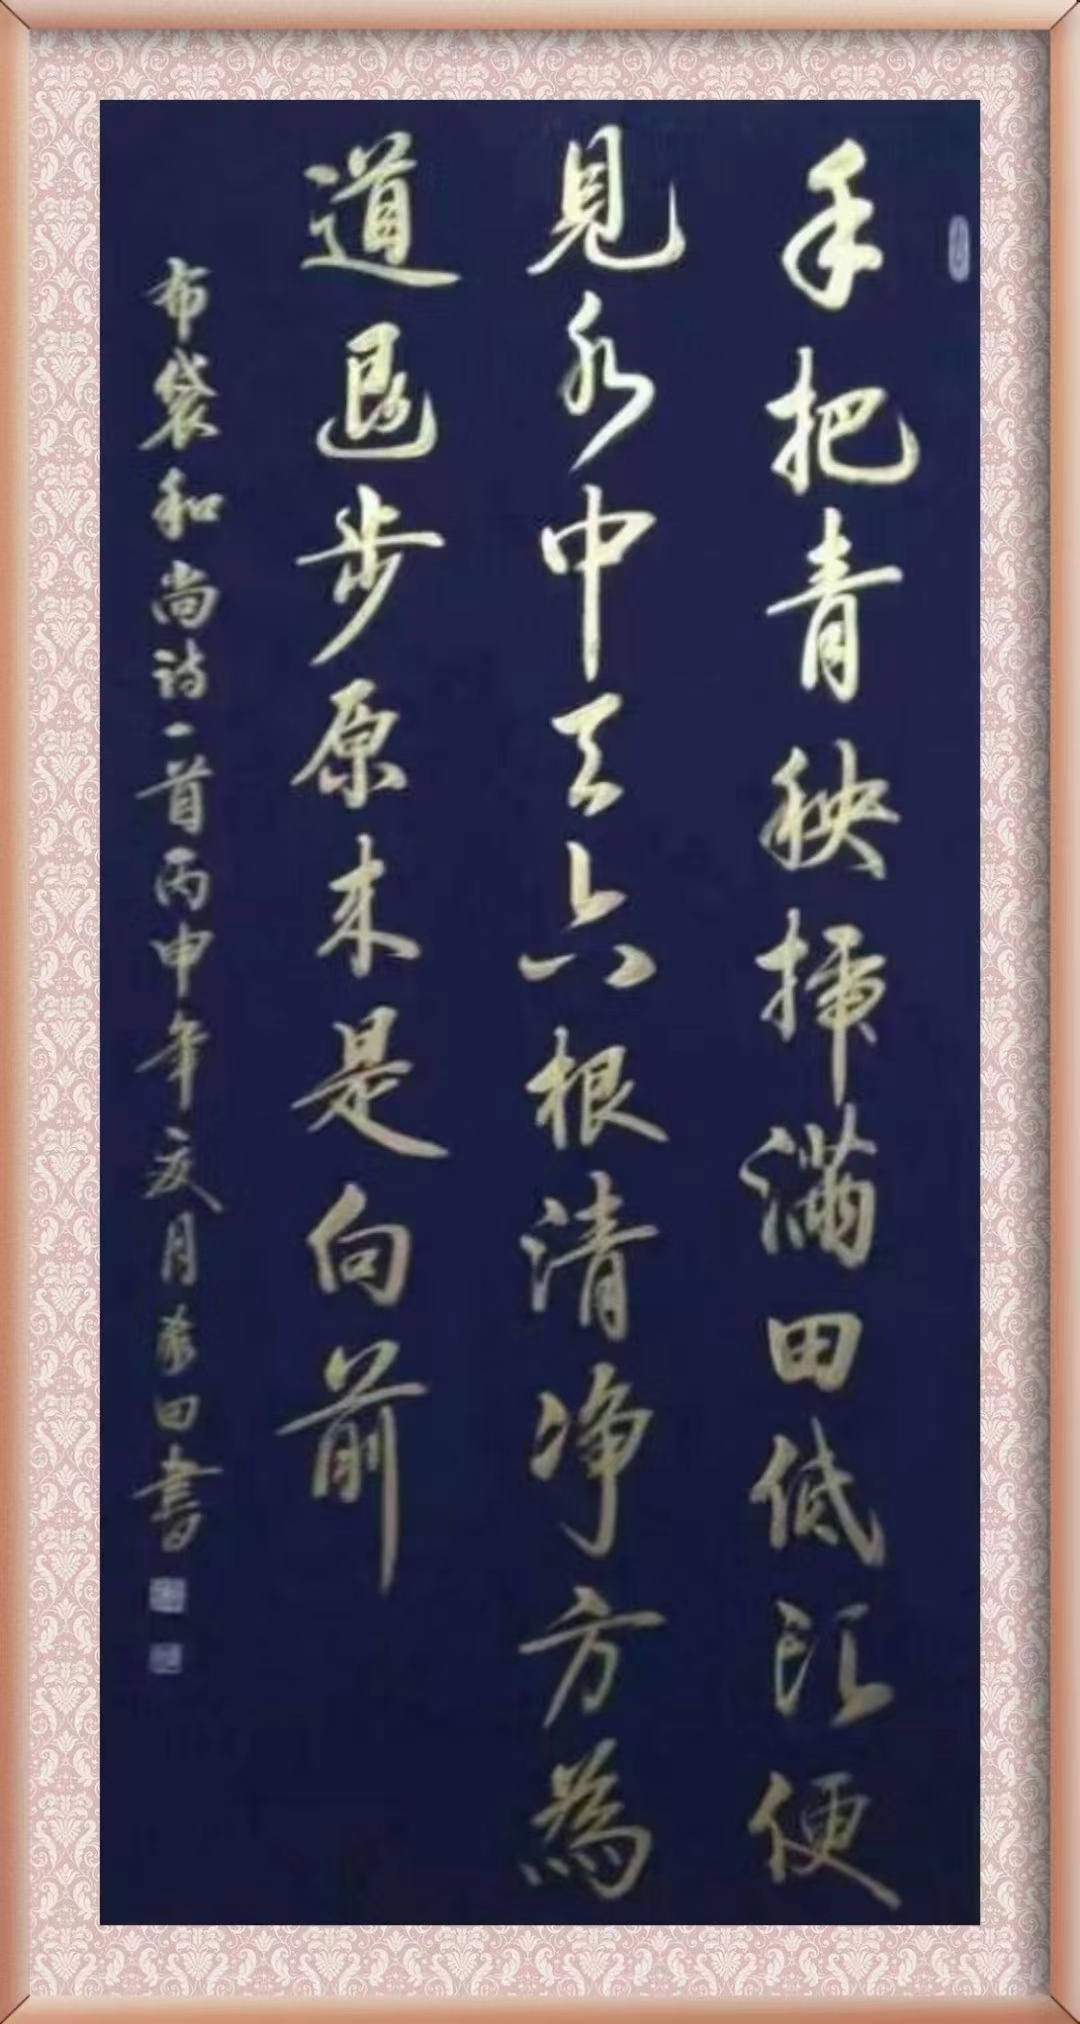 手把青秧插满田低头便
見水中天六根清净方為
道退步原来是向前
布袋和尚诗一首丙申年亥月 田書